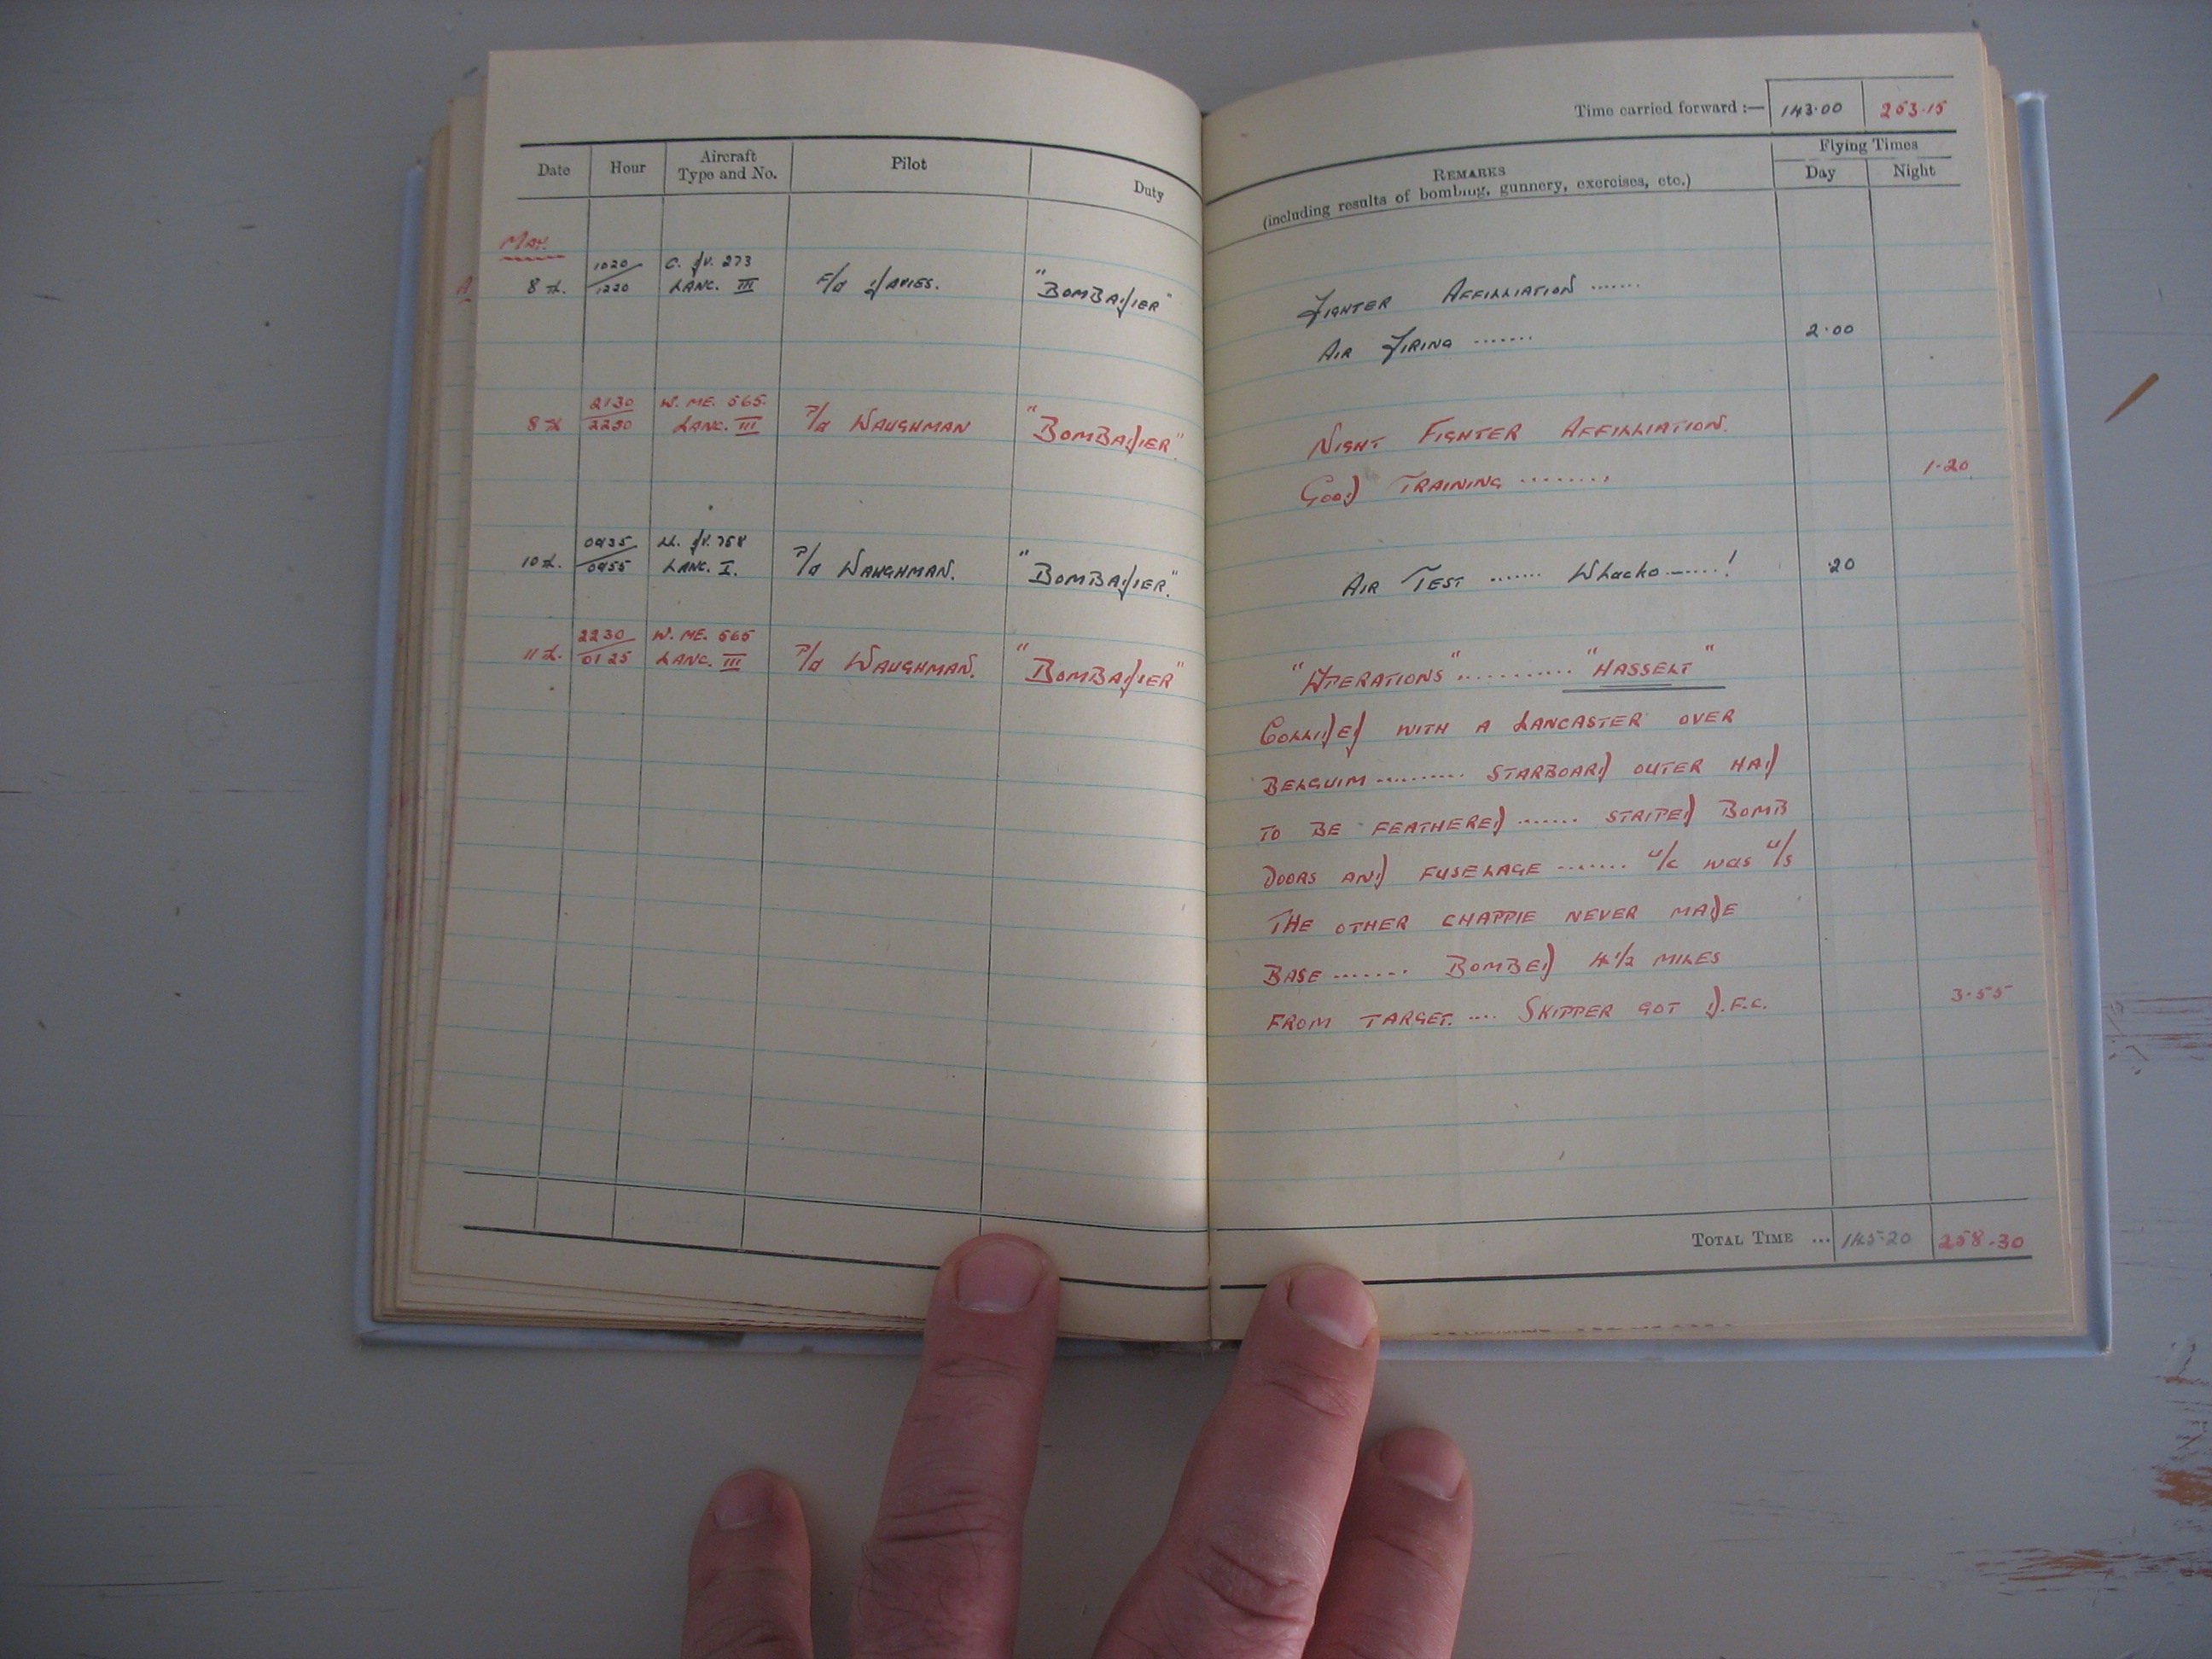 Time carried forward :— 143·00 253·15
Date Hour Aircraft Type and No. Pilot Duty
REMARKS (including results of bombing, gunnery, exercises, etc.)
Flying Times
Day Night
May.
A
8th. 1020/1220 C. JV. 273 LANC. III F/O DAVIES. "BOMBADIER"
FIGHTER AFFILLIATION .......
AIR FIRING ....... 2·00
8th 2130 2230 W. ME. 565. LANC. III P/O WAUGHMAN "BOMBADIER".
NIGHT FIGHTER AFFILLIATION.
GOOD TRAINING ........ 1·20
10th. 0935/0955 LANC. I. P/O WAUGHMAN. "BOMBADIER."
AIR TEST ....... Whacko ......! ·20
11th. 2230/0125 W. ME. 565 LANC. III P/O WAUGHMAN. "BOMBADIER"
"OPERATIONS" .......... "HASSELT"
COLLIDED WITH A LANCASTER OVER
BELGUIM .......... STARBOARD OUTER HAD
TO BE FEATHERED ....... STRIPED BOMB
DOORS AND FUSELAGE ....... U/C was U/S
THE OTHER CHAPPIE NEVER MADE
BASE ....... BOMBED 4½ MILES
FROM TARGET. .... SKIPPER GOT D.F.C. 3·55
TOTAL TIME ... 145·20 258·30